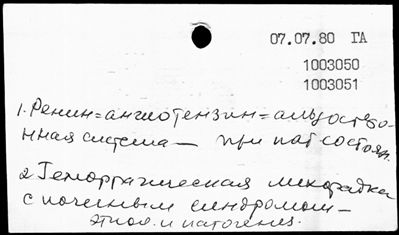 07.07.80 ГА
1003050
1003051
1. Ренин=ангиотензин=альдостеро-
нная система — при пат состоян.
2. Геморрагическая лихорадка
с почечным синдромом —
этиол. и патогенез.